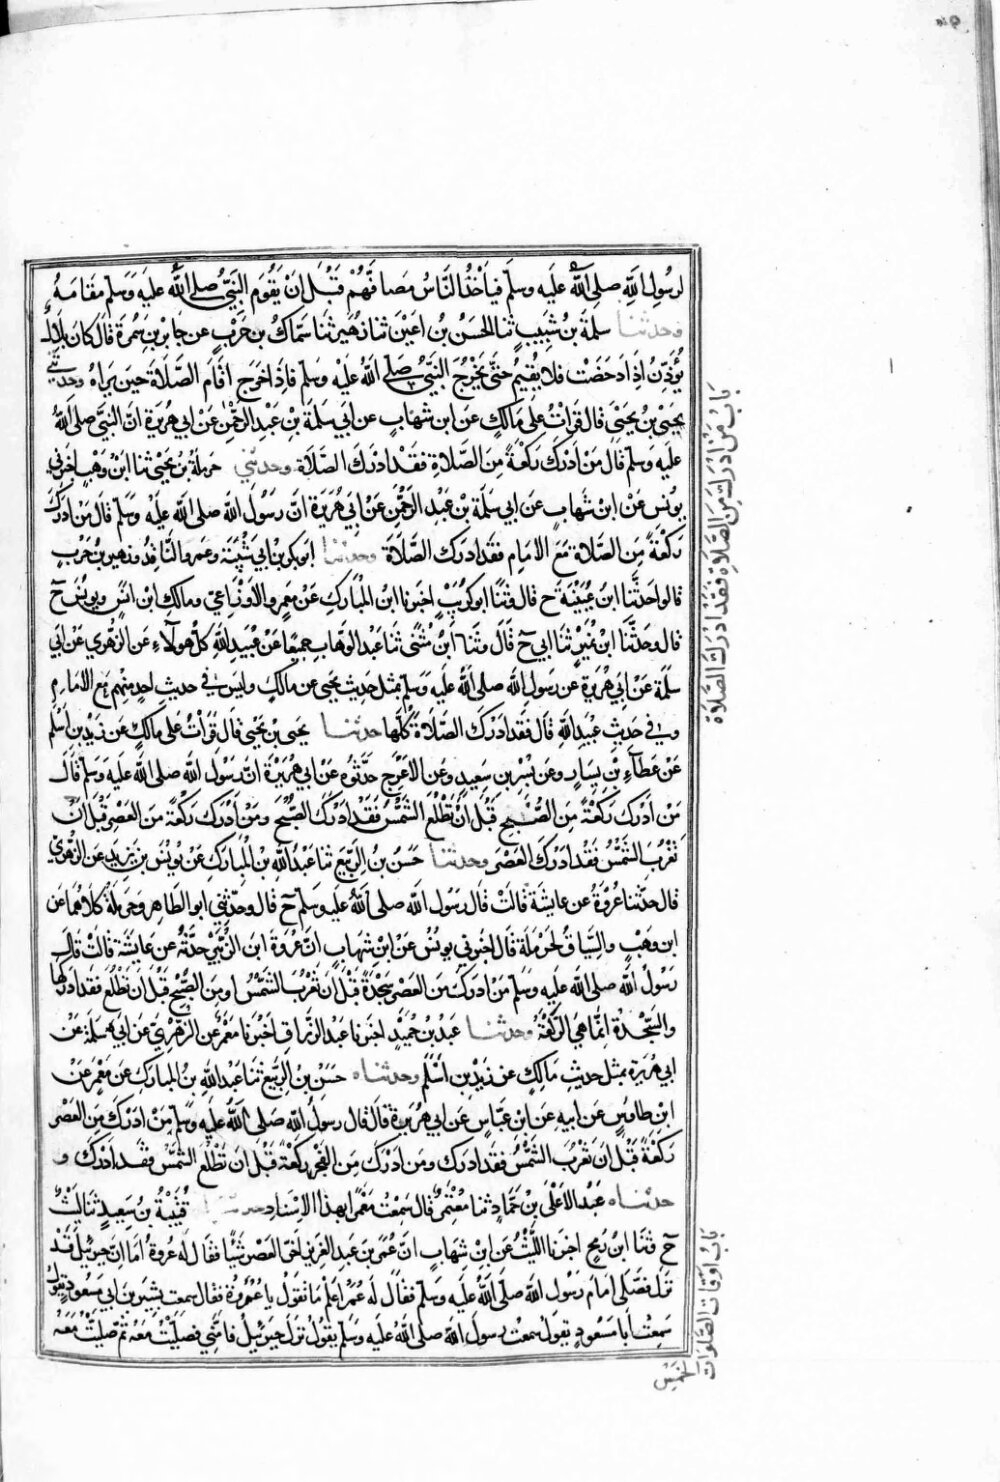 لرسول الله صلى الله عليه وسلم فيأخذ الناس مصافهم قبل ان يقوم النبي صلى الله عليه وسلم مقامه
وحدثنا سلمة بن شبيب ثنا الحسن بن اعين ثنا زهير ثنا سماك بن حرب عن جابر بن سمرة قال كان بلال
يؤذن اذا دحضت فلا يقيم حتى يخرج النبي صلى الله عليه وسلم فاذا خرج اقام الصلاة حين يراه وحدثني
يحيى بن يحيى قال قرأت على مالك عن ابن شهاب عن ابي سلمة بن عبد الرحمن عن ابي هريرة ان النبي صلى الله
عليه وسلم قال من ادرك ركعة من الصلاة فقد ادرك الصلاة وحدثني حرملة بن يحيى ثنا ابن وهب اخبرني
يونس عن ابن شهاب عن ابي سلمة بن عبد الرحمن عن ابي هريرة ان رسول الله صلى الله عليه وسلم قال من ادرك
ركعة من الصلاة مع الامام فقد ادرك الصلاة وحدثنا ابو بكر بن ابي شيبة وعمرو الناقد وزهير بن حرب
قالوا حدثنا ابن عيينة ح قال وثنا ابو كريب اخبرنا ابن المبارك عن معمر والاوزاعي ومالك ابن انس ويونس ح
قال وحدثنا ابن نمير ثنا ابي ح قال وثنا ابن مثنى ثنا عبد الوهاب جميعا عن عبيد الله كل هولاء عن الزهري عن ابي
سلمة عن ابي هريرة عن رسول الله صلى الله عليه وسلم بمثل حديث يحيى عن مالك وليس في حديث احد منهم مع الامام
وفي حديث عبيد الله قال فقد ادرك الصلاة كلها حدثنا يحيى بن يحيى قال قرأت على مالك عن زيد بن اسلم
عن عطاء بن يسار وعن بسر بن سعيد وعن الاعرج حدثوه عن ابي هريرة ان رسول الله صلى الله عليه وسلم قال
من ادرك ركعة من الصبح قبل ان تطلع الشمس فقد ادرك الصبح ومن ادرك ركعة من العصر قبل ان
تغرب الشمس فقد ادرك العصر وحدثنا حسن بن الربيع ثنا عبد الله بن المبارك عن يونس بن يزيد عن الزهري
قال حدثنا عروة عن عايشة قالت قال رسول الله صلى الله عليه وسلم ح قال وحدثني ابو الطاهر وحرملة كلاهما عن
ابن وهب والسياق لحرملة قال اخبرني يونس عن ابن شهاب ان عروة ابن الزبير حدثه عن عايشة قالت قال
رسول الله صلى الله عليه وسلم من ادرك من العصر سجدة قبل ان تغرب الشمس او من الصبح قبل ان تطلع فقد ادركها
والسجدة انما هي الركعة وحدثنا عبد بن حميد اخبرنا عبد الرزاق اخبرنا معمر عن الزهري عن ابي سلمة عن
ابي هريرة بمثل حديث مالك عن زيد بن اسلم وحدثناه حسن بن الربيع ثنا عبد الله بن المبارك عن معمر عن
ابن طاوس عن ابيه عن ابن عباس عن ابي هريرة قال قال رسول الله صلى الله عليه وسلم من ادرك من العصر
ركعة قبل ان تغرب الشمس فقد ادرك ومن ادرك من الفجر ركعة قبل ان تطلع الشمس فقد ادرك و
حدثناه عبد الاعلى بن حماد ثنا معتمر قال سمعت معمرا بهذا الاسناد حدثنا قتيبة بن سعيد ثنا ليث
ح وثنا ابن رمح اخبرنا الليث عن ابن شهاب ان عمر بن عبد العزيز اخر العصر شيئا فقال له عروة اما ان جبريل قد
نزل فصلى امام رسول الله صلى الله عليه وسلم فقال له عمر اعلم ما تقول يا عروة فقال سمعت بشير بن ابي مسعود يقول
سمعت ابا مسعود يقول سمعت رسول الله صلى الله عليه وسلم يقول نزل جبريل فامني فصليت معه ثم صليت معه
باب من ادرك من الصلاة فقد ادرك الصلاة
باب اوقات الصلوات
الخمس